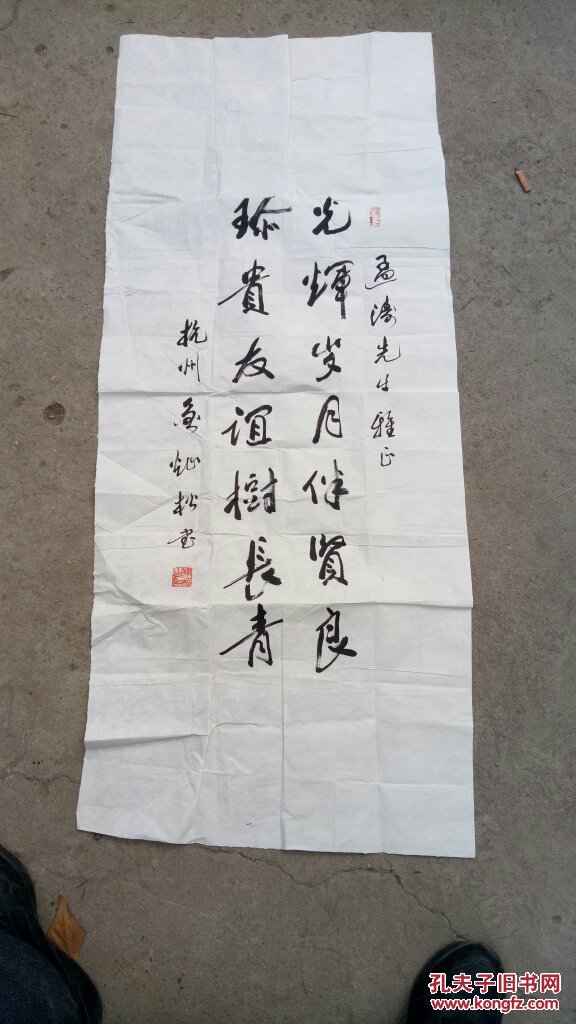 孟濤先生雅正
光輝歲月伴賢良
珍貴友誼樹長青
杭州 松书
孔夫子旧书网
www.kongfz.com